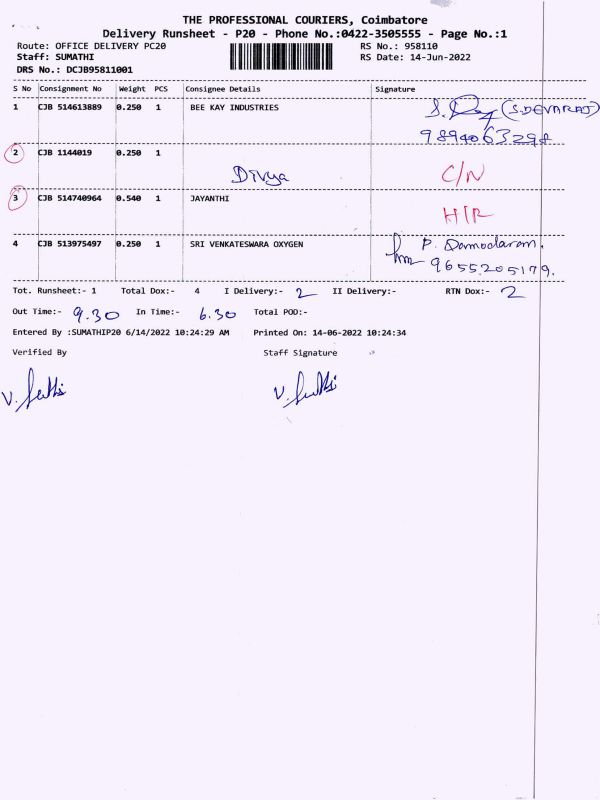 THE PROFESSIONAL COURIERS, Coimbatore
Delivery Runsheet - P20 - Phone No.:0422-3505555 - Page No.:1
Route: OFFICE DELIVERY PC20 RS No.: 958110
Staff: SUMATHI RS Date: 14-Jun-2022
DRS No.: DCJB95811001
S No Consignment No Weight PCS Consignee Details Signature
1 CJB 514613889 0.250 1 BEE KAY INDUSTRIES (S.DEVARAJ)
9894063298
2 CJB 1144019 0.250 1
Divya C/N
3 CJB 514740964 0.540 1 JAYANTHI
H/R
4 CJB 513975497 0.250 1 SRI VENKATESWARA OXYGEN P. Damodaram.
9655205179.
Tot. Runsheet:- 1 Total Dox:- 4 I Delivery:- 2 II Delivery:- RTN Dox:- 2
Out Time:- 9.30 In Time:- 6.30 Total POD:-
Entered By :SUMATHIP20 6/14/2022 10:24:29 AM Printed On: 14-06-2022 10:24:34
Verified By Staff Signature